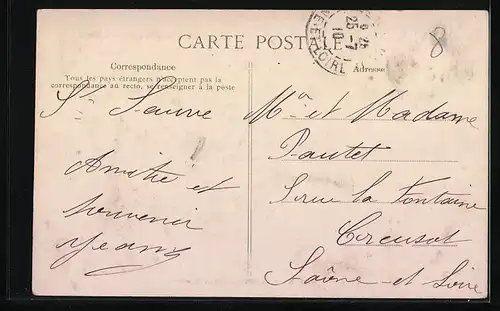 CARTE POSTALE
8
25-7
10
ET-LOIRE
Correspondance
Tous les pays étrangers n'acceptent pas la
correspondance au recto, se renseigner à la poste
Adresse
St Sauve
Amitié et
souvenir
Mr et Madame
Pautet
5 rue la Fontaine
Creusot
Saône-et-Loire